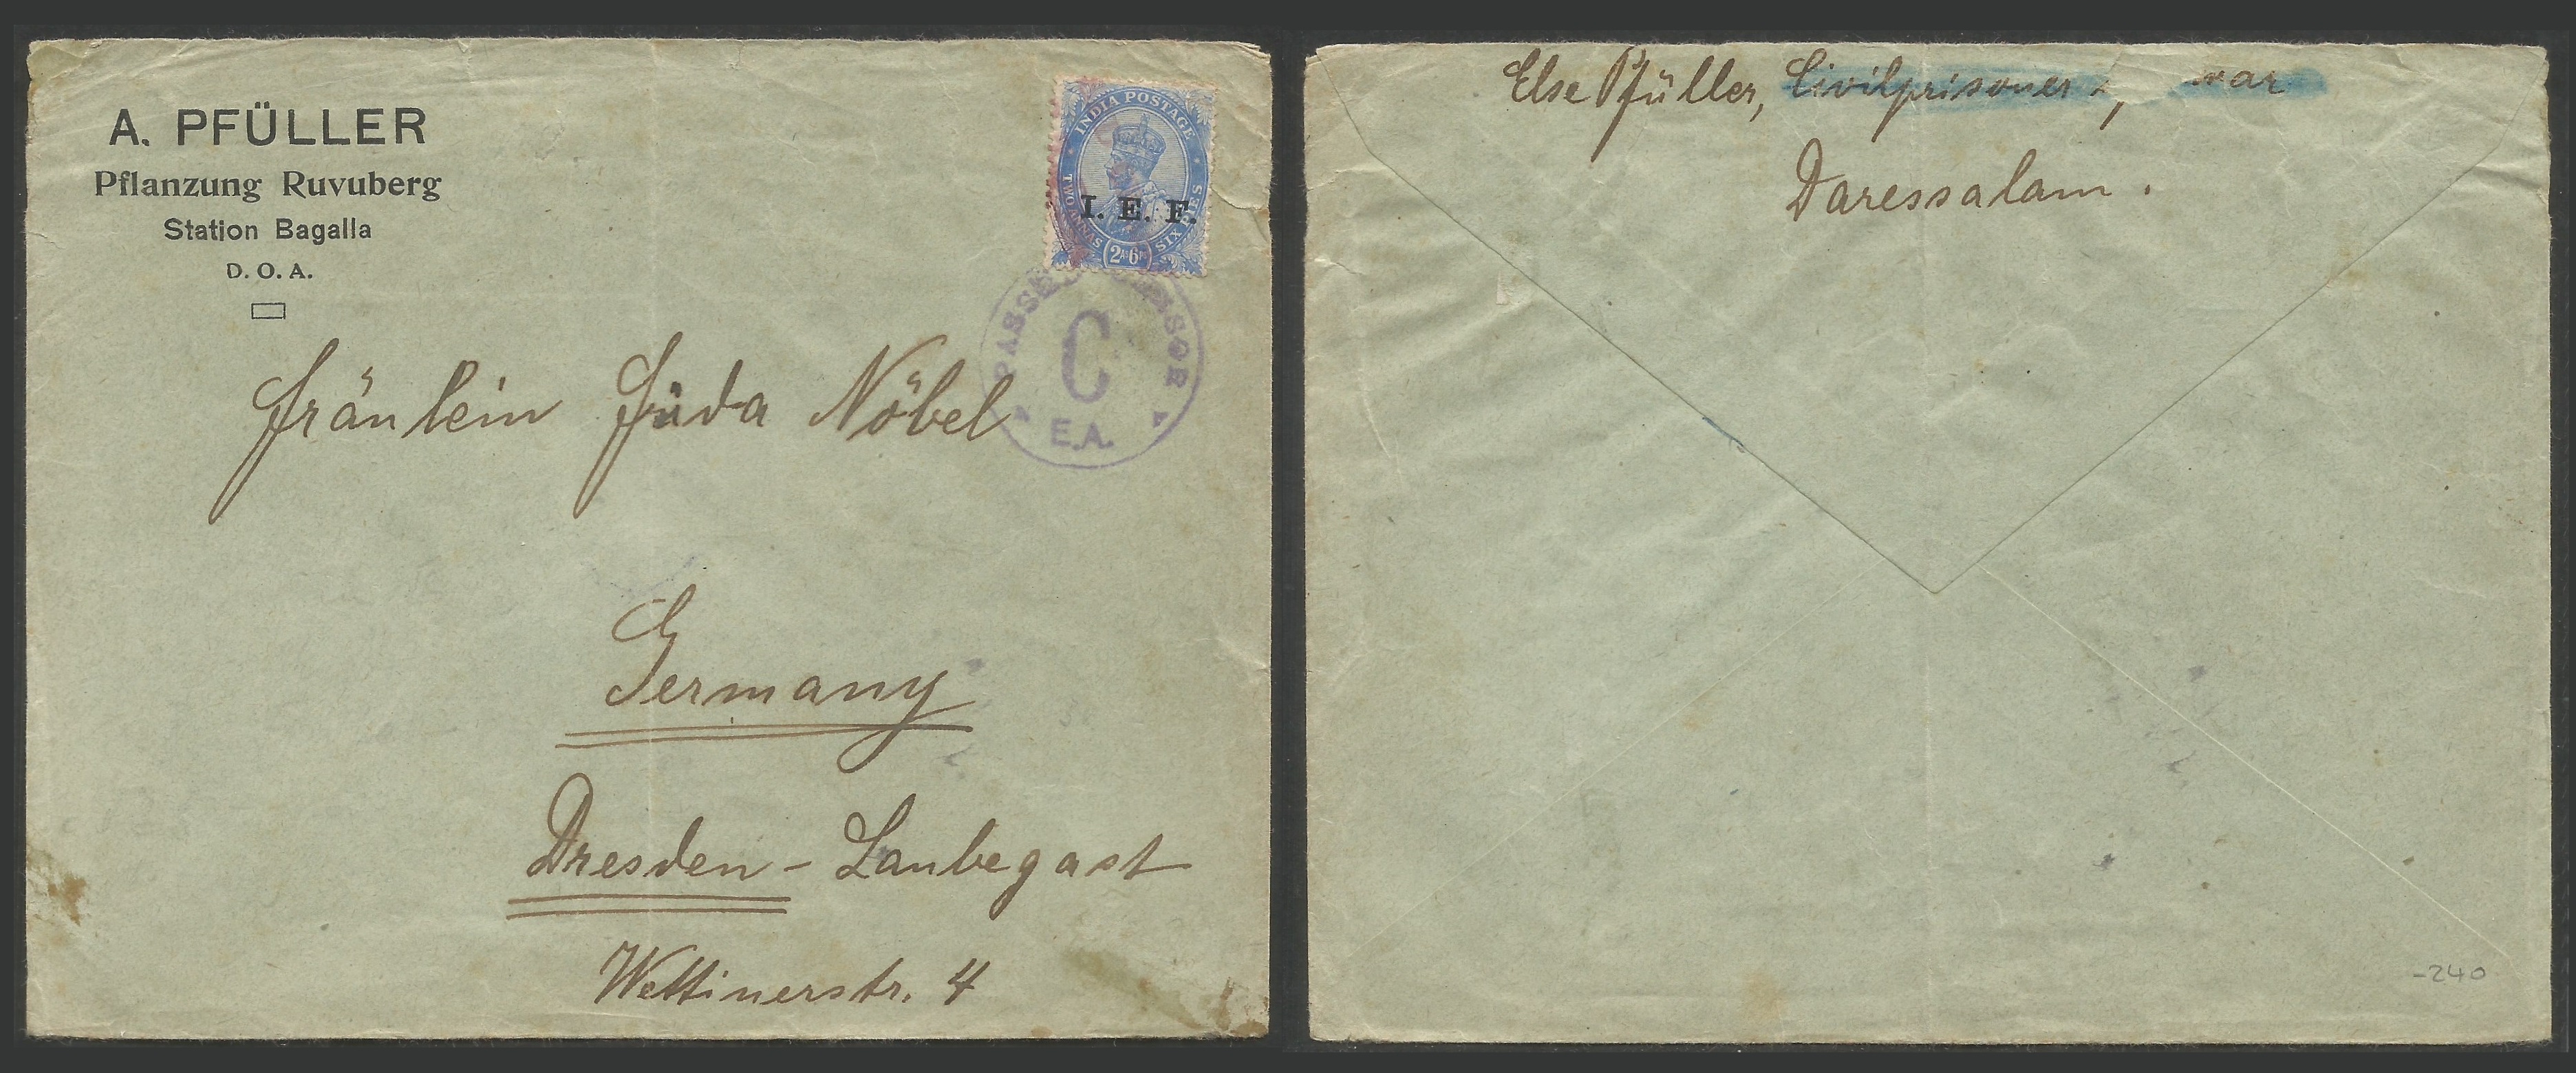 A. PFÜLLER
Pflanzung Ruvuberg
Station Bagalla
D. O. A.
INDIA POSTAGE
TWO ANNAS SIX PIES
I. E. F.
2As6Ps
PASSED CENSOR
C
E.A.
Fräulein Nöbel
Germany
Dresden - Laubegast
Wettinerstr. 4
Else Pfüller, Civilprisoner war
Daressalam.
-240